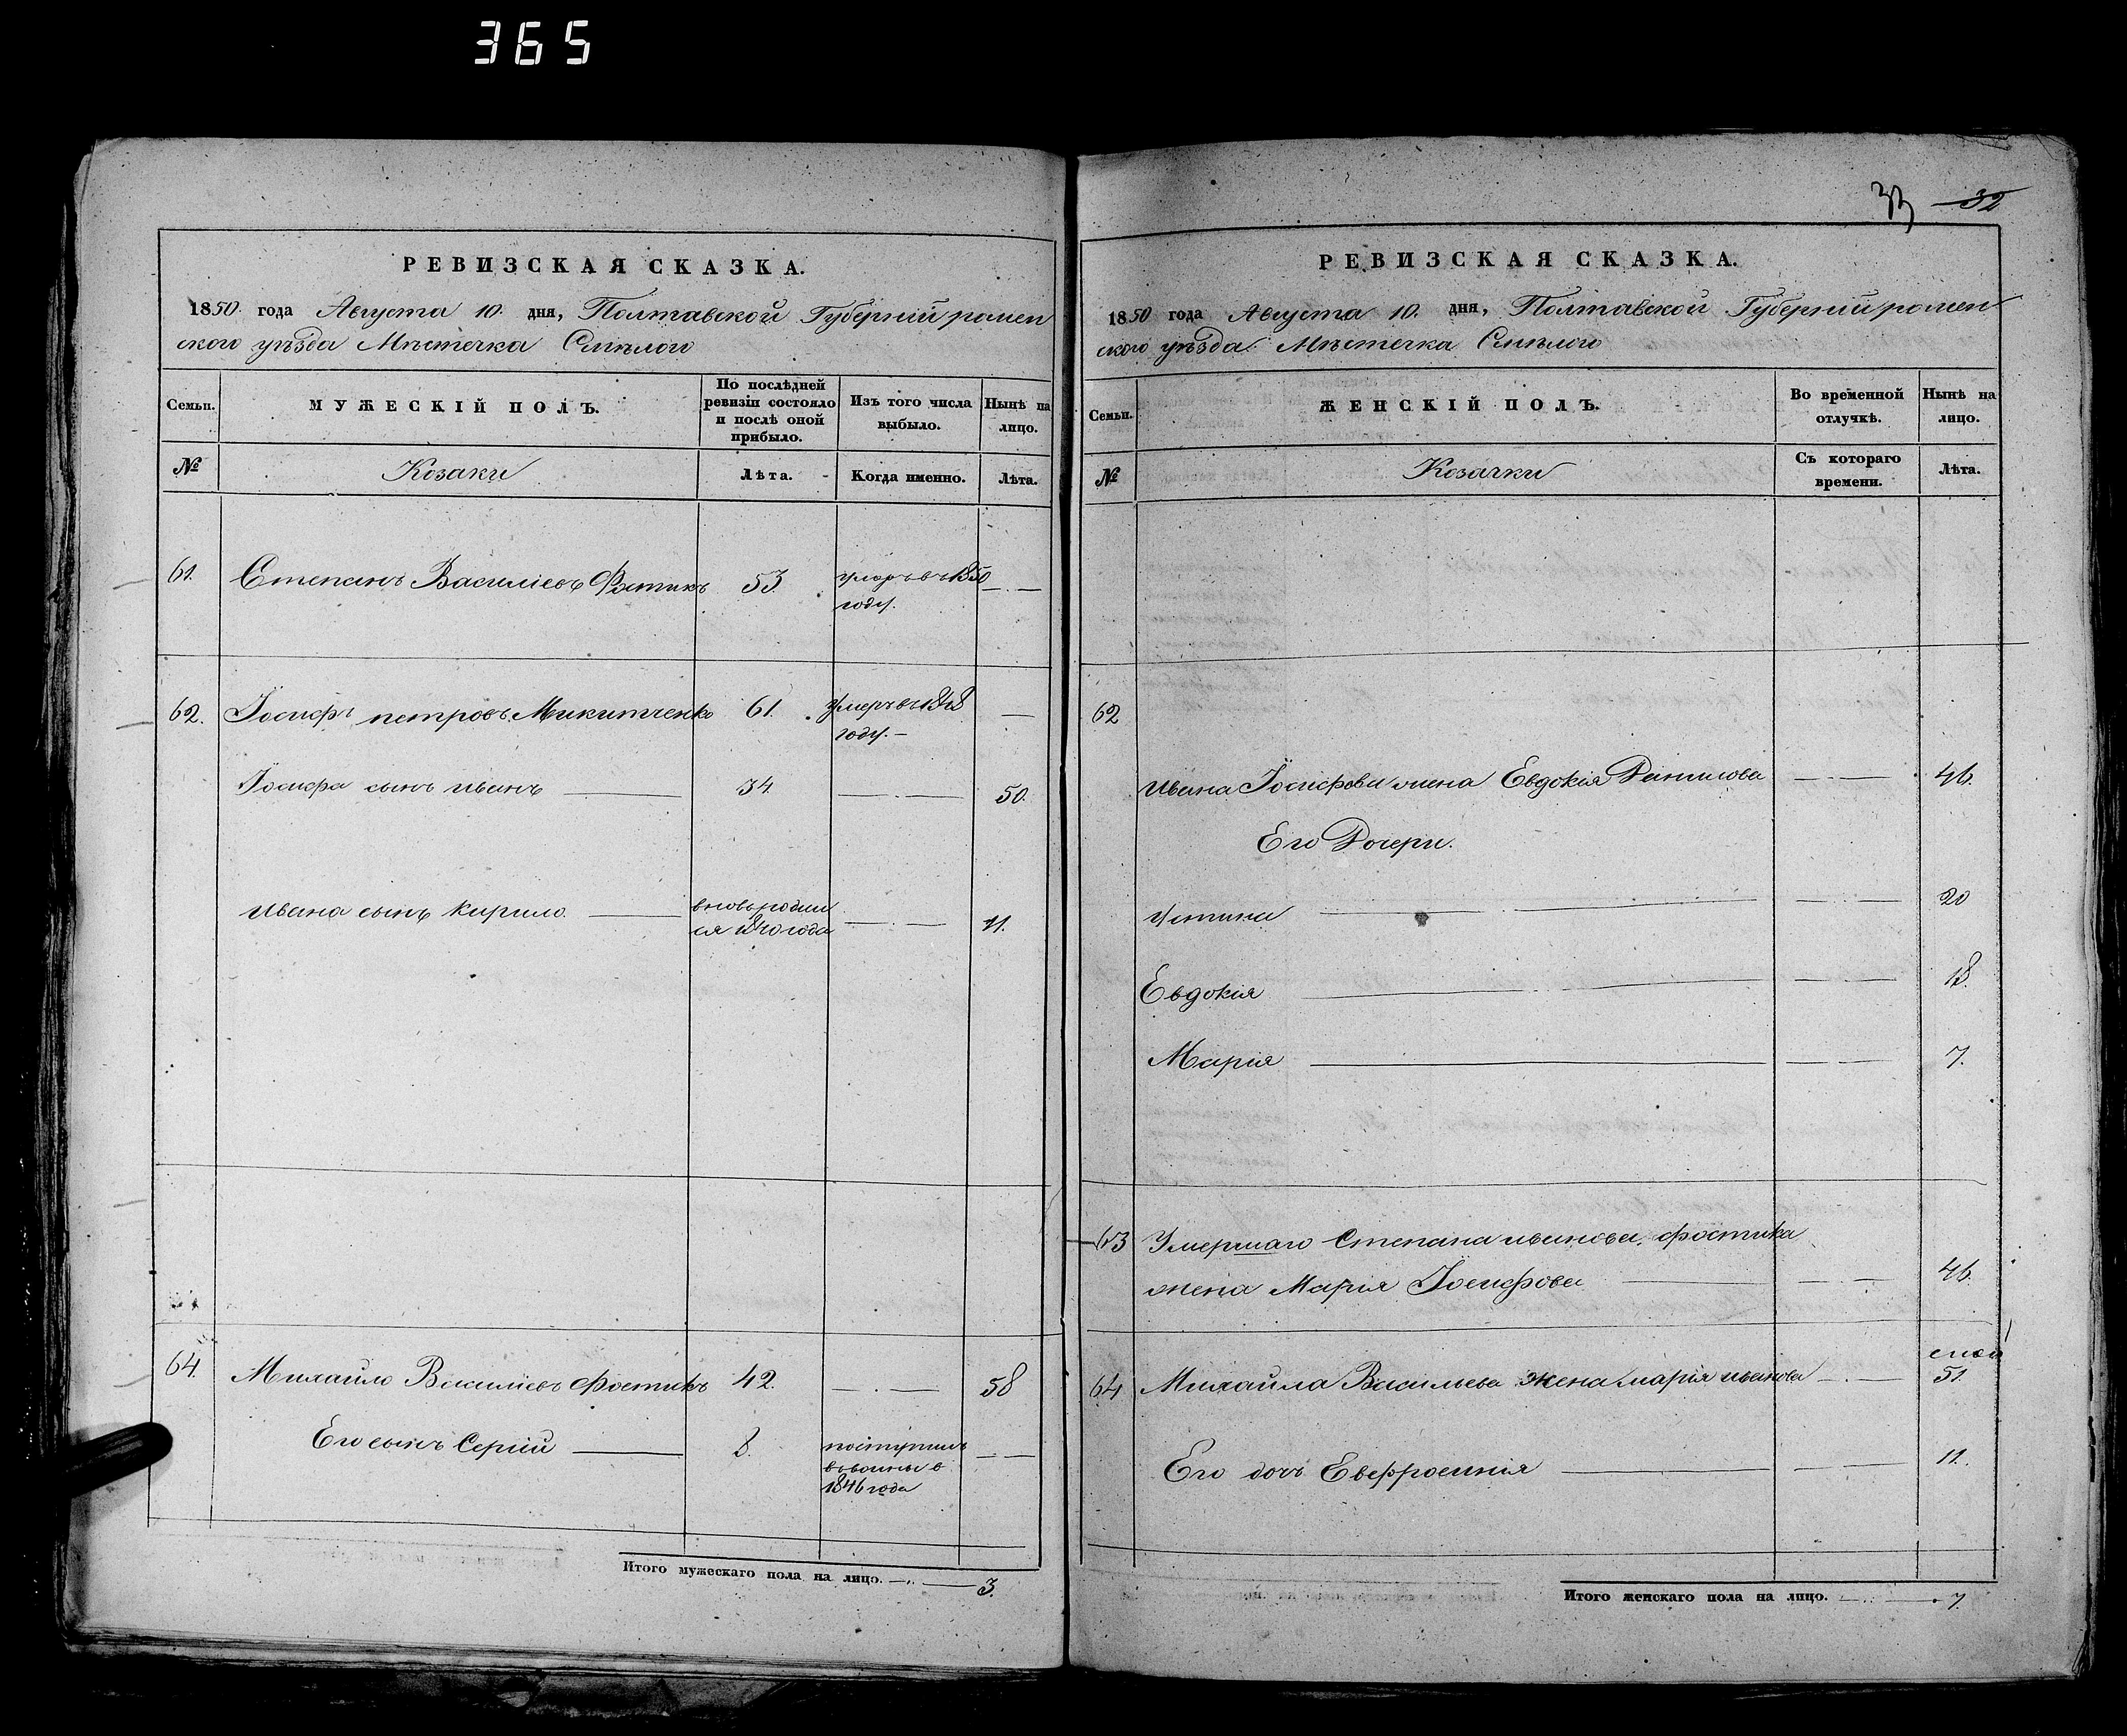 365
РЕВИЗСКАЯ СКАЗКА.
1850. года Августа 10. дня, Полтавской Губерніи ромен
ского уѣзда Мѣстечка Смѣлого
Семьи.
МУЖЕСКІЙ ПОЛЪ.
По послѣдней
ревизіи состояло
и послѣ оной
прибыло.
Изъ того числа
выбыло.
Нынѣ на
лицо.
№
Козаки
Лѣта.
Когда именно.
Лѣта.
61. Степанъ Василіевъ Фостикъ 53. умеръ въ 1850
году.
62. Іосифъ петровъ Микитченко 61. Умеръ въ 1848
году.
Іосифа сынъ иванъ 34. 50.
Ивана сынъ Кирило. вновь родил
ся 1840 года 11.
64. Михаило Василіевъ фостикъ 42. 58
Его сынъ Сергій 8. поступилъ
въ воины в
1846 года
Итого мужескаго пола на лицо. 3.
33 32
РЕВИЗСКАЯ СКАЗКА.
1850 года Августа 10. дня, Полтавской Губерніи ромен
ского уѣзда Мѣстечка Смѣлого
Семьи.
ЖЕНСКІЙ ПОЛЪ.
Во временной
отлучкѣ.
Нынѣ на
лицо.
№
Козачки
Съ котораго
времени.
Лѣта.
62
Ивана Іосифова жена Евдокія Данилова 46.
Его Дочери.
Устина 20
Евдокія 18.
Марія 7.
63 Умершаго Степана иванова фостика
жена Марія Іосифова 46.
64 Михайла Васильева жена марія иванова 51.
Его дочь Евфросинія 11.
Итого женскаго пола на лицо. 7.